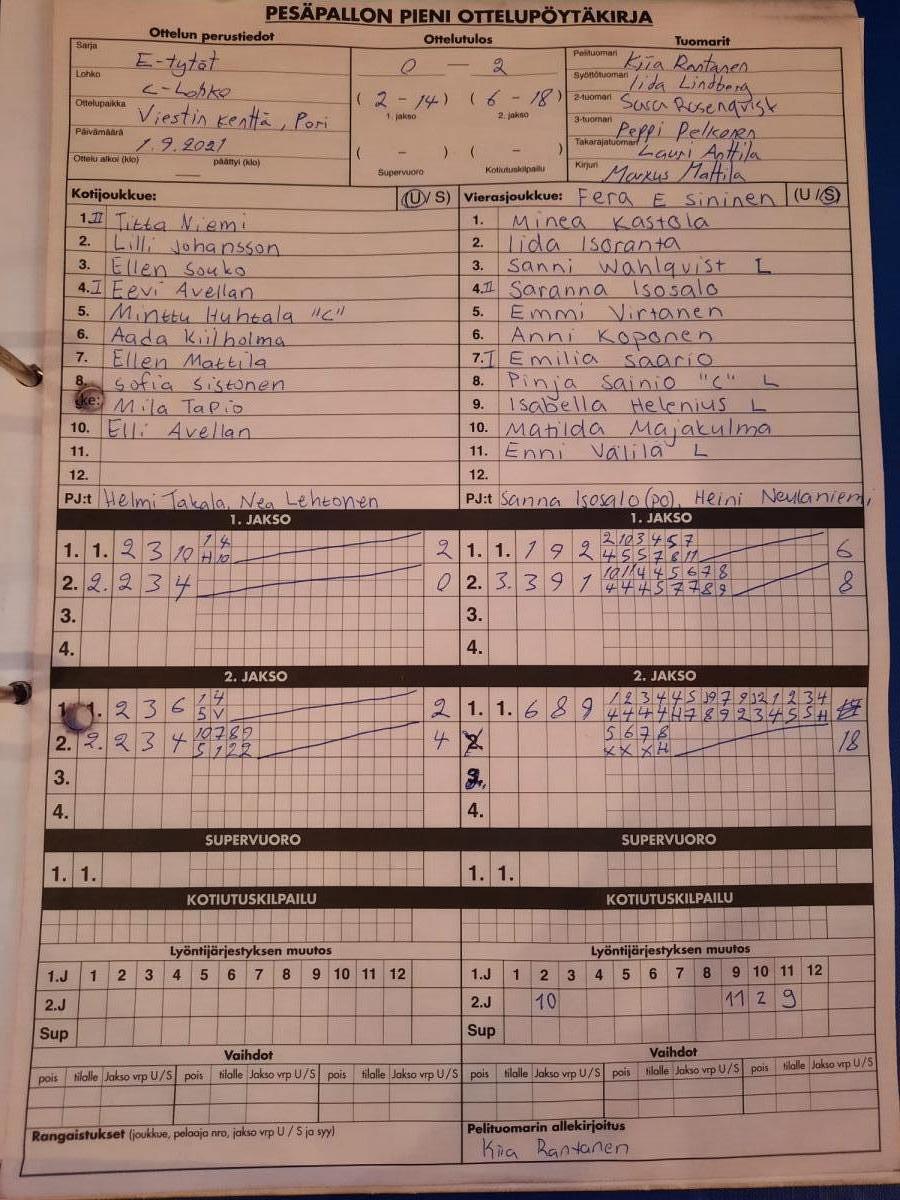 PESÄPALLON PIENI OTTELUPÖYTÄKIRJA
Ottelun perustiedot
Sarja E-tytöt
Lohko C-Lohko
Ottelupaikka Viestin kenttä, Pori
Päivämäärä 1.9.2021
Ottelu alkoi (klo) päättyi (klo)
Ottelutulos
0 — 2
( 2 - 14 ) ( 6 - 18 )
1. jakso 2. jakso
( - ) ( - )
Supervuoro Kotiutuskilpailu
Tuomarit
Pelituomari Kiia Rantanen
Syöttötuomari Iida Lindberg
2-tuomari Susa Rosenqvist
3-tuomari Peppi Pelkonen
Takarajatuomari Lauri Anttila
Kirjuri Markus Mattila
Kotijoukkue: (U/ S)
1. II Titta Niemi
2. Lilli Johansson
3. Ellen Souko
4. I Eevi Avellan
5. Minttu Huhtala "C"
6. Aada Kiilholma
7. Ellen Mattila
8. Sofia Sistonen
Mila Tapio
10. Elli Avellan
11.
12.
PJ:t Helmi Takala, Nea Lehtonen
Vierasjoukkue: Fera E sininen (U /S)
1. Minea Kastola
2. Iida Isoranta
3. Sanni Wahlqvist L
4. II Saranna Isosalo
5. Emmi Virtanen
6. Anni Koponen
7. I Emilia Saario
8. Pinja Sainio "C" L
9. Isabella Helenius L
10. Matilda Majakulma
11. Enni Välilä L
12.
PJ:t Sanna Isosalo (PO), Heini Neulaniemi
1. JAKSO
1. 1. 2 3 10 1 4 2
H 10
2. 2. 2 3 4 0
3.
4.
1. JAKSO
1. 1. 1 9 2 2 10 3 4 5 7 6
4 5 5 7 8 11
2. 3. 3 9 1 10 11 4 4 5 6 7 8 8
4 4 4 5 7 7 8 9
3.
4.
2. JAKSO
1. 2 3 6 1 4 2
5 V
2. 2. 2 3 4 10 7 8 9 4
5 1 2 2
3.
4.
2. JAKSO
1. 1. 6 8 9 1 2 3 4 4 5 7 9 12 1 2 3 4
4 4 4 4 H 7 8 9 2 3 4 5 5 H
5 6 7 8 18
X X X H
4.
SUPERVUORO
1. 1.
SUPERVUORO
1. 1.
KOTIUTUSKILPAILU
KOTIUTUSKILPAILU
Lyöntijärjestyksen muutos
1.J 1 2 3 4 5 6 7 8 9 10 11 12
2.J
Sup
Lyöntijärjestyksen muutos
1.J 1 2 3 4 5 6 7 8 9 10 11 12
2.J 10 11 2 9
Sup
Vaihdot
pois tilalle Jakso vrp U/S pois tilalle Jakso vrp U/S pois tilalle Jakso vrp U/S
Vaihdot
pois tilalle Jakso vrp U/S pois tilalle Jakso vrp U/S pois tilalle Jakso vrp U/S
Rangaistukset (joukkue, pelaaja nro, jakso vrp U / S ja syy)
Pelituomarin allekirjoitus
Kiia Rantanen